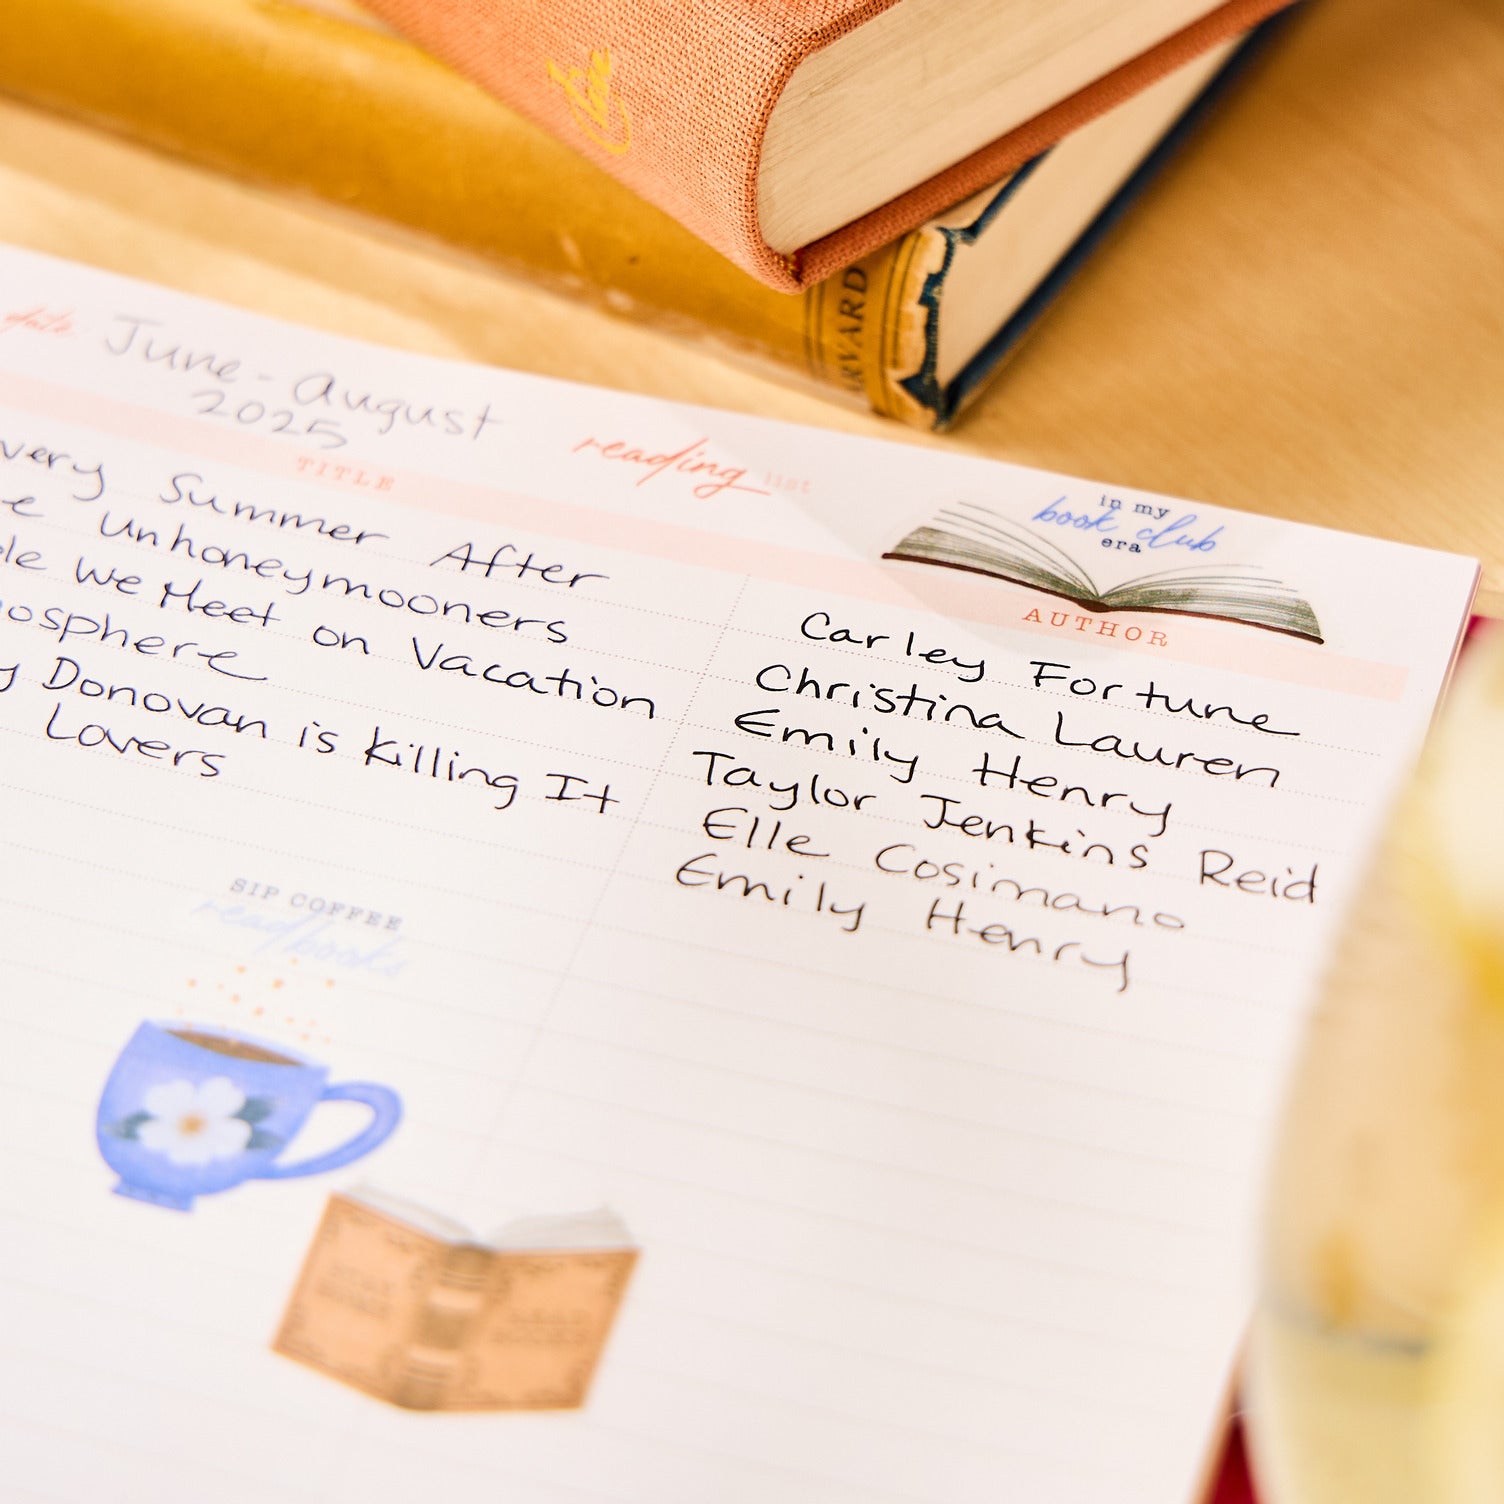 ARVARD
date:
June - August
2025
reading list
in my
book club
era
TITLE
AUTHOR
very Summer After
Carley Fortune
e Unhoneymooners
Christina Lauren
ple We Meet on Vacation
Emily Henry
mosphere
Taylor Jenkins Reid
y Donovan is Killing It
Elle Cosimano
Lovers
Emily Henry
SIP COFFEE
read books